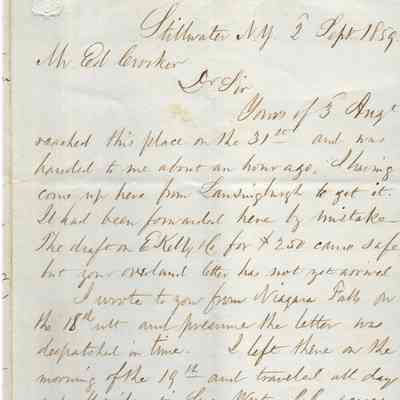 Stillwater N.Y. 2 Sept 1859.
Mr Ed Crocker
Dr Sir
Yours of 5 Augt
reached this place on the 31st and was
handed to me about an hour ago, I having
come up here from Lansingburgh to get it.
It had been forwarded here by mistake—
The draft on E Kelly & Co for $250 came safe
but your overland letter has not yet arrived
I wrote to you from Niagara Falls on
the 18th ult and presume the letter was
despatched in time. I left there on the
morning of the 19th and traveled all day